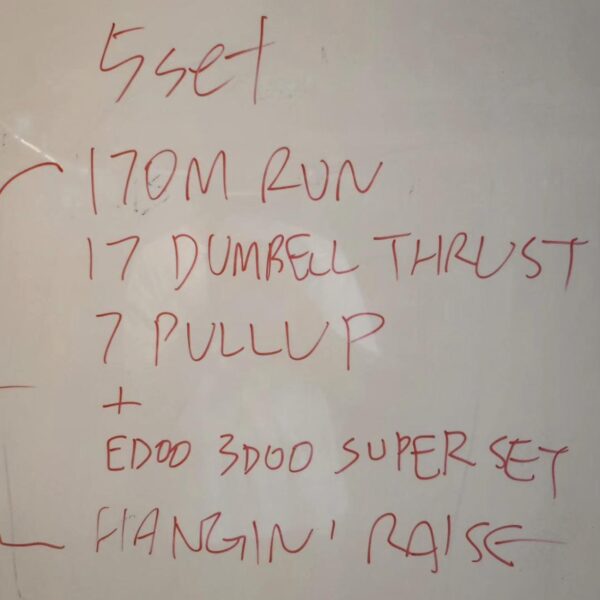 5 set
170M RUN
17 DUMBELL THRUST
7 PULLUP
+
EDOO 3DOO SUPER SET
HANGIN' RAISE